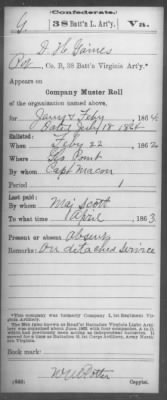 (Confederate.)
G 38 Batt'n L. Art'y. Va.
D. H. Gaines
Pvt, Co. B, 38 Batt'n Virginia Art'y.*
Appears on
Company Muster Roll
of the organization named above,
for Jany & Feby, 1864
Enlisted:
When Feby 22, 1862
Where Glo Point
By whom Capt Macon
Period 1
Last paid:
By whom Maj Scott
To what time 1 April, 1863
Present or absent Absent
Remarks: On detached service
*This company was formerly Company I, 1st Regiment Virginia Artillery.
Book mark:
(642) Copyist.